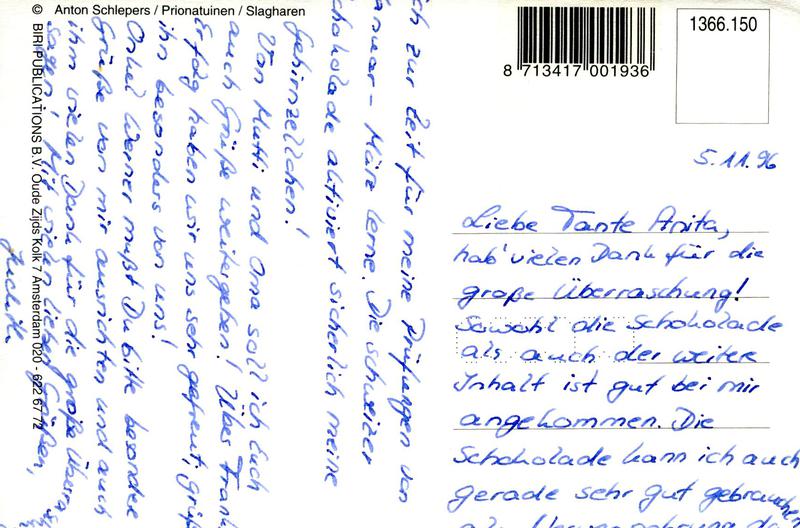 © Anton Schlepers / Prionatuinen / Slagharen
BIRI PUBLICATIONS B.V. Oude Zijds Kolk 7 Amsterdam 020 - 622 67 72
8 713417 001936
1366.150
5.11.96
Liebe Tante Anita,
hab' vielen Dank für die
große Überraschung!
Sowohl die Schokolade
als auch der weitere
Inhalt ist gut bei mir
angekommen. Die
Schokolade kann ich auch
gerade sehr gut gebrauchen
ich zur Zeit für meine Prüfungen von
Januar - März lerne. Die schweizer
Schokolade aktiviert sicherlich meine
Gehirnzellchen!
Von Mutti und Oma soll ich Euch
auch Grüße weitergeben! Über Frank
Erfolg haben wir uns sehr gefreut, grüß
ihn besonders von uns!
Onkel Werner mußt Du bitte besondere
Grüße von mir ausrichten und auch
ihm vielen Dank für die große
sagen! Mit vielen lieben Grüßen,